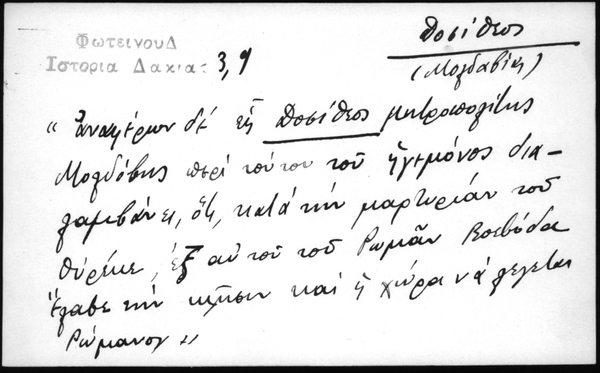 Φωτεινου Δ
Ιστορια Δακιας 3, 9
Δοσίθεος
(Μολδαβίης)
“ ἀναφέρων δὲ ἐξ Δοσίθεος μητροπολίτης
Μολδόβης περὶ τούτου τοῦ ἡγεμόνος δια-
λαμβάνει, ὅτι, κατὰ τὴν μαρτυρίαν τοῦ
Θύρεκε, ἐξ αὐτοῦ τοῦ Ρωμᾶν Βοεβόδα
ἔλαβε τὴν κλῆσιν καὶ ἡ χώρα νὰ λέγεται
Ρώμανον ”